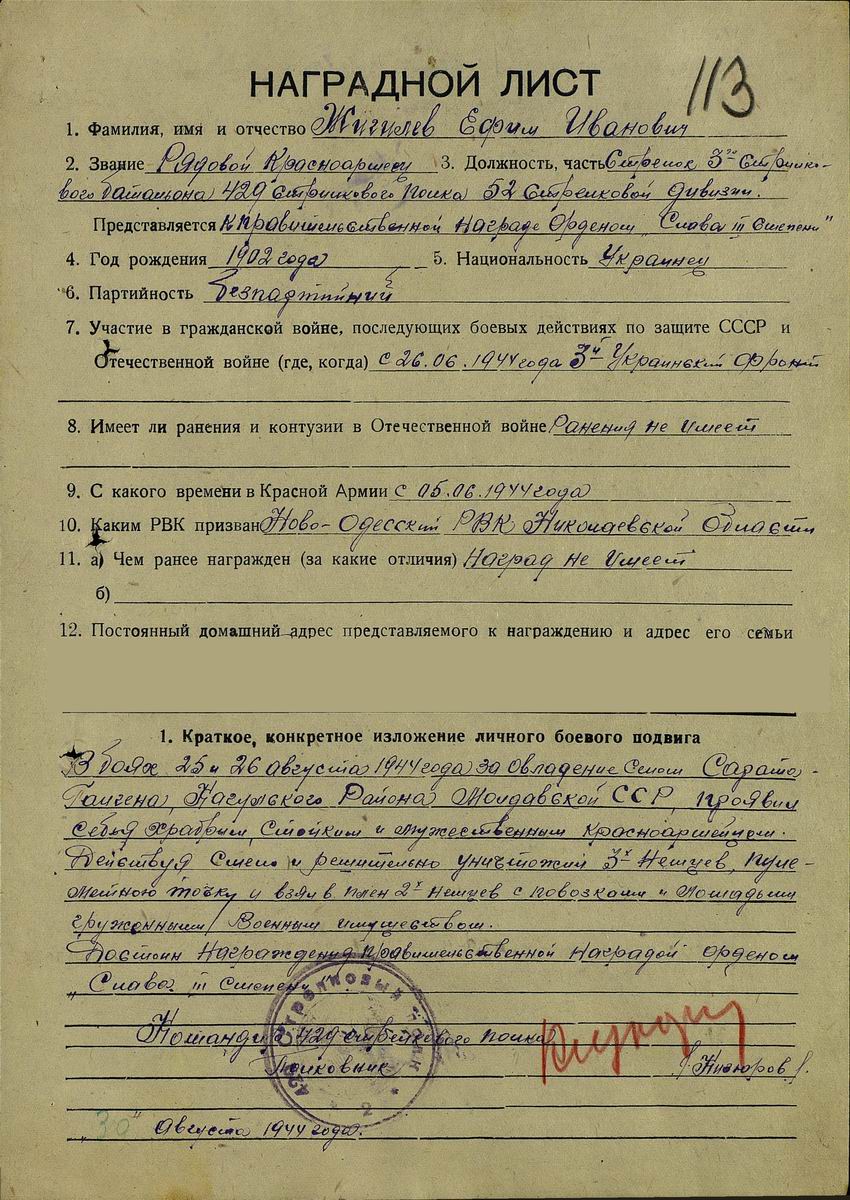 113
НАГРАДНОЙ ЛИСТ
1. Фамилия, имя и отчество Жигилев Ефим Иванович
2. Звание Рядовой Красноармеец 3. Должность, часть Стрелок 3го Стрелко-
вого баталиона 429 Стрелкового полка 52 Стрелковой дивизии.
Представляется к правительственной Награде Орденом „Слава III Степени"
4. Год рождения 1902 года 5. Национальность Украинец
6. Партийность безпартийний
7. Участие в гражданской войне, последующих боевых действиях по защите СССР и
Отечественной войне (где, когда) с 26.06.1944 года 3й Украинский фронт
8. Имеет ли ранения и контузии в Отечественной войне Ранения не имеет
9. С какого времени в Красной Армии с 05.06.1944 года
10. Каким РВК призван Ново-Одесский РВК Николаевской Области
11. а) Чем ранее награжден (за какие отличия) Наград не имеет
б)
12. Постоянный домашний адрес представляемого к награждению и адрес его семьи
1. Краткое, конкретное изложение личного боевого подвига
В боях 25 и 26 августа 1944 года за овладение Селом Сарата-
Галгена, Кагулского Района Молдавской ССР, проявил
себя храбрым, Стойким и мужественным красноармейцем.
Действуя Смело и решительно уничтожил 3х Немцев, пуле-
метную точку и взял в плен 2х немцев с повозками и Лошадьми
груженными Военным имуществом.
Достоин Награждения правительственной Наградой орденом
„Слава III Степени".
Командир 429 стрелкового полка
Полковник
429 СТРЕЛКОВЫЙ ПОЛК
* 2 *
„30" Августа 1944 года.